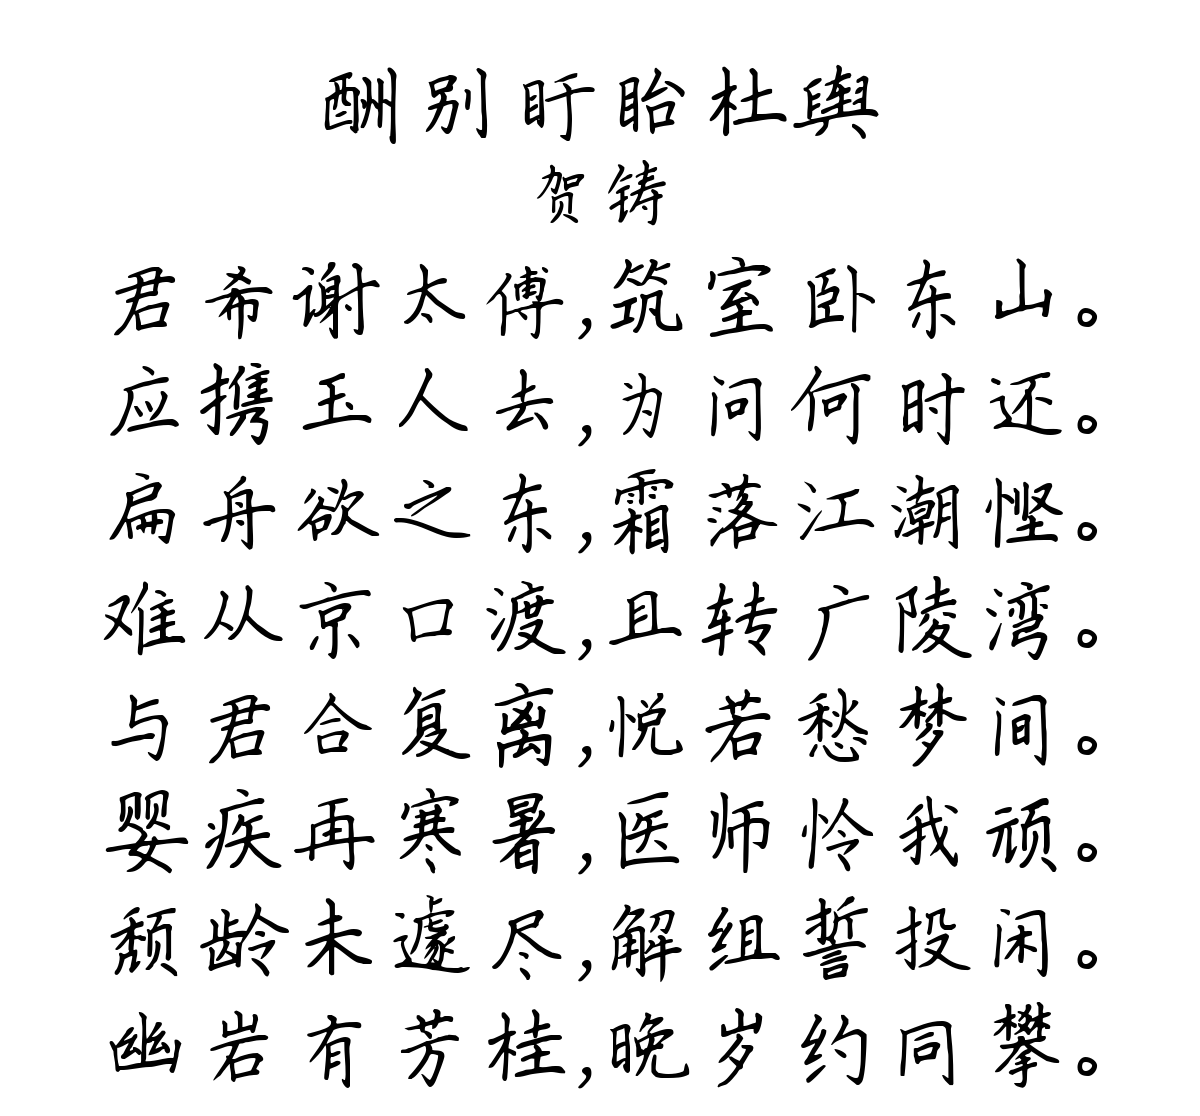 酬别盱眙杜舆
贺铸
君希谢太傅,筑室卧东山。
应携玉人去,为问何时还。
扁舟欲之东,霜落江潮悭。
难从京口渡,且转广陵湾。
与君合复离,悦若愁梦间。
婴疾再寒暑,医师怜我顽。
颓龄未遽尽,解组誓投闲。
幽岩有芳桂,晚岁约同攀。